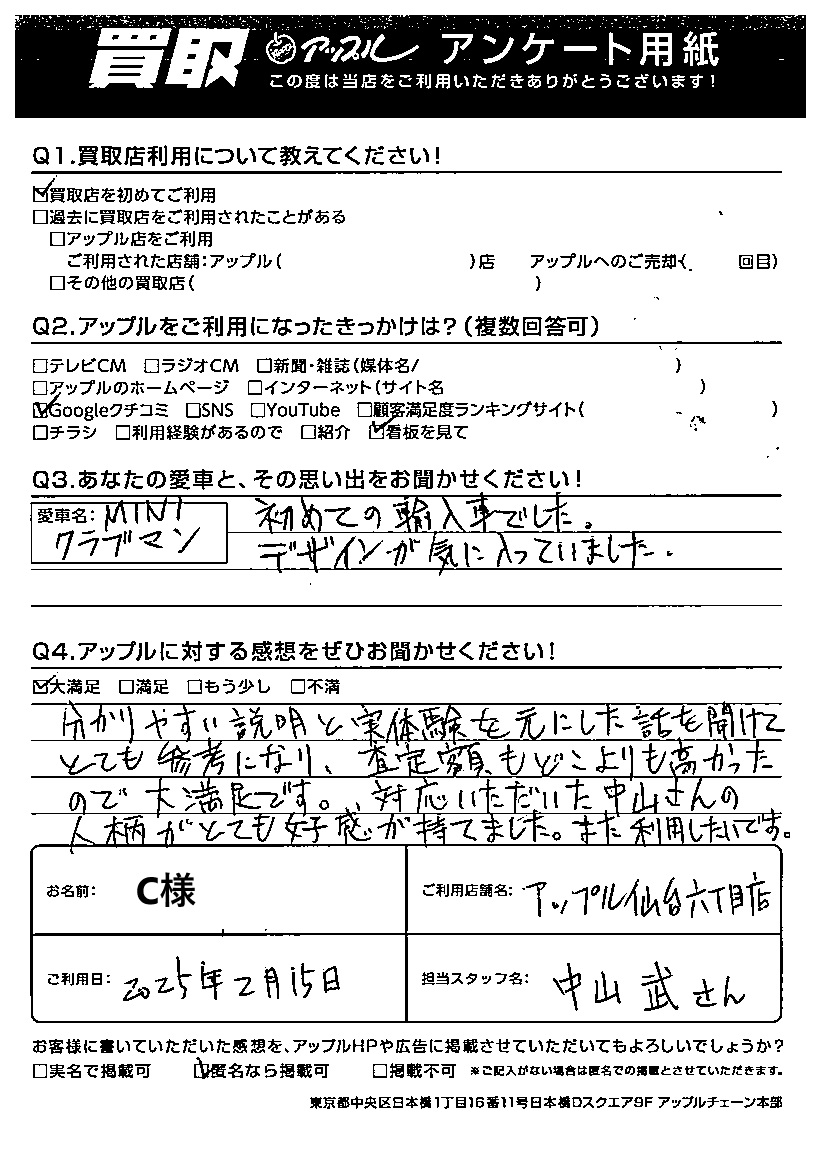 買取 アップル アンケート用紙
この度は当店をご利用いただきありがとうございます！
Q1.買取店利用について教えてください！
☑買取店を初めてご利用
□過去に買取店をご利用されたことがある
□アップル店をご利用
ご利用された店舗：アップル（　　　）店　アップルへのご売却（　　　回目）
□その他の買取店（　　　）
Q2.アップルをご利用になったきっかけは？（複数回答可）
□テレビCM □ラジオCM □新聞・雑誌（媒体名/　　　）
□アップルのホームページ □インターネット（サイト名　　　）
☑Googleクチコミ □SNS □YouTube □顧客満足度ランキングサイト（　　　）
□チラシ □利用経験があるので □紹介 ☑看板を見て
Q3.あなたの愛車と、その思い出をお聞かせください！
愛車名：MINI
クラブマン
初めての輸入車でした。
デザインが気に入っていました。
Q4.アップルに対する感想をぜひお聞かせください！
☑大満足 □満足 □もう少し □不満
分かりやすい説明と実体験を元にした話を聞けて
とても参考になり、査定額もどこよりも高かった
ので大満足です。対応いただいた中山さんの
人柄がとても好感が持てました。また利用したいです。
お名前： C様
ご利用店舗名： アップル仙台六丁目店
ご利用日： 2025年2月15日
担当スタッフ名： 中山 武さん
お客様に書いていただいた感想を、アップルHPや広告に掲載させていただいてもよろしいでしょうか？
□実名で掲載可 ☑匿名なら掲載可 □掲載不可 ※ご記入がない場合は匿名での掲載とさせていただきます。
東京都中央区日本橋1丁目16番11号日本橋Dスクエア9F アップルチェーン本部